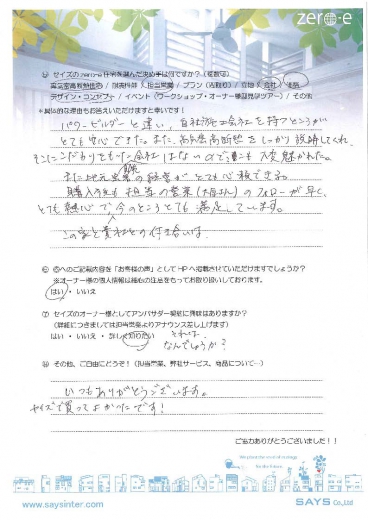 zero-e
⑤ セイズのzero-e住宅を選んだ決め手は何ですか？（複数可）
高気密高断熱住宅 / 自然素材 / 担当営業 / プラン（間取り） / 立地 / 会社 / 価格
デザイン・コンセプト / イベント（ワークショップ・オーナー様邸見学ツアー） / その他
*具体的な理由もお答えいただけますと幸いです！
パワービルダーと違い、自社施工会社を持つところが
とても安心できた。また、高気密高断熱をしっかり説明してくれ、
そこにこだわりをもった会社は
また地元
購入後も担当の営業 のフォローが早く、
とても親切で今のところとても満足しています。
この家と貴社との付き合いは、
⑥ ⑤へのご記載内容を「お客様の声」としてHPへ掲載させていただけますでしょうか？
*オーナー様の個人情報は細心の注意をもってお取り扱いしております。
はい・いいえ
⑦ セイズのオーナー様としてアンバサダー契約に興味はありますか？
（詳細につきましては担当営業よりアナウンス差し上げます）
はい・いいえ・詳しく知りたい それは
なんでしょうか？
⑧ その他、ご自由にどうぞ！（担当営業、弊社サービス、商品について…）
いつもありがとうございます。
セイズで買ってよかったです！
ご協力ありがとうございました！！
www.saysinter.com
SAYS Co.,Ltd